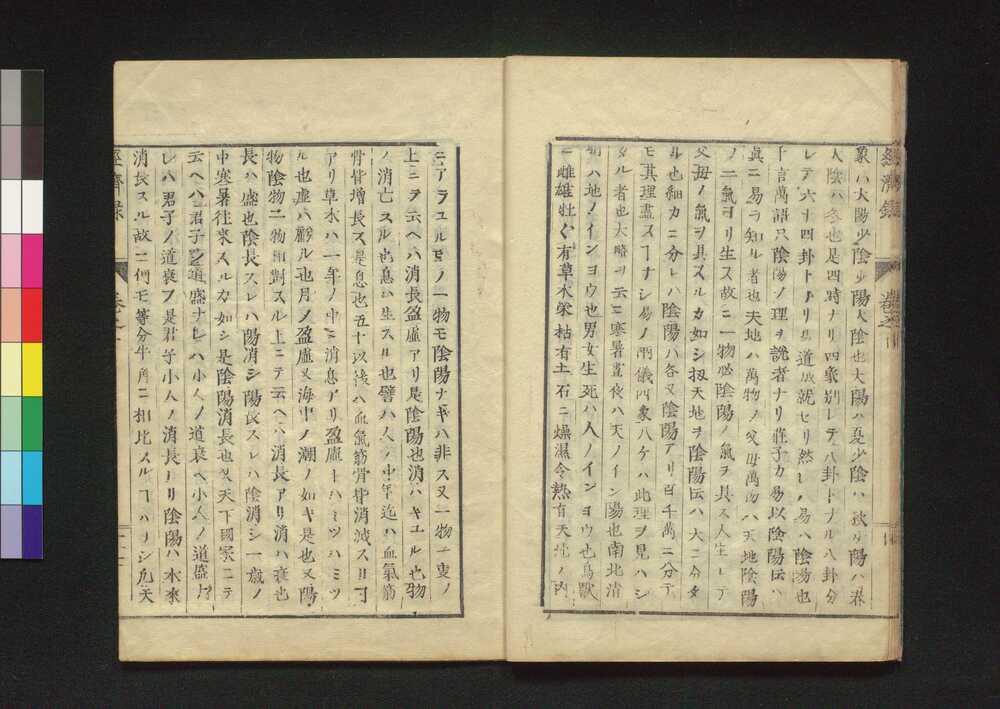 象ハ太陽少陰少陽太陰也太陽ハ夏少陰ハ秋少陽ハ春
太陰ハ冬也是四時ナリ四象別レテ八卦トナル八卦分
レテ六十四卦トナリ易道成就セリ然レハ易ハ陰陽也
千言萬語只陰陽ノ理ヲ説者ナリ莊子カ易以陰陽云ハ
真ニ易ヲ知ル者也天地ハ萬物ノ父母萬物ハ天地陰陽
ノ二氣ヨリ生ス故ニ一物必陰陽ノ氣ヲ具ス人生レテ
父母ノ氣ヲ具スルカ如シ扨天地ヲ陰陽云ハ大ニ分タ
ル也細カニ分レハ陰陽ハ各又陰陽アリ百千萬ニ分テ
モ其理盡スヿナシ易ノ兩儀四象八ケハ此理ヲ見ハシ
タル者也大略ヲ云ニ寒暑晝夜ハ天ノイン陽也南北清
濁ハ地ノインヨウ也男女生死ハ人ノインヨウ也鳥獸
ニ雌雄牡〻有草木栄枯有土石ニ燥濕冷熱有天地ノ内
ニアラユルモノ一物モ陰陽ナキハ非ス又一物一隻ノ
上ニテ云ヘハ消長盈虚アリ是陰陽也消ハキユル也物
ノ消亡スル也息ハ生スル也譬ハ人ノ中年迄ハ血氣筋
骨皆増長ス是息也五十以後ハ血氣筋骨皆消滅スリ可
アリ草木ハ一年ノ中ニ消息アリ盈虚トハミツハミツ
ル也虚ハ虧ル也月ノ盈虚又海中ノ潮ノ如キ是也又陽
物陰物二物相對スル上ニテ云ヘハ消長アリ消ハ衰也
長ハ盛也陰長スレハ陽消シ陽長スレハ陰消シ一歳ノ
中寒暑往来スルカ如シ是陰陽消長也又天下國家ニテ
云ヘハ君子ノ道盛ナレハ小人ノ道衰ヘ小人ノ道盛ナ
レハ君子ノ道衰フ是君子小人ノ消長ナリ陰陽ハ本來
消長スル故ニ何モ等分半角ニ相比スルヿハナシ凡天
經濟録